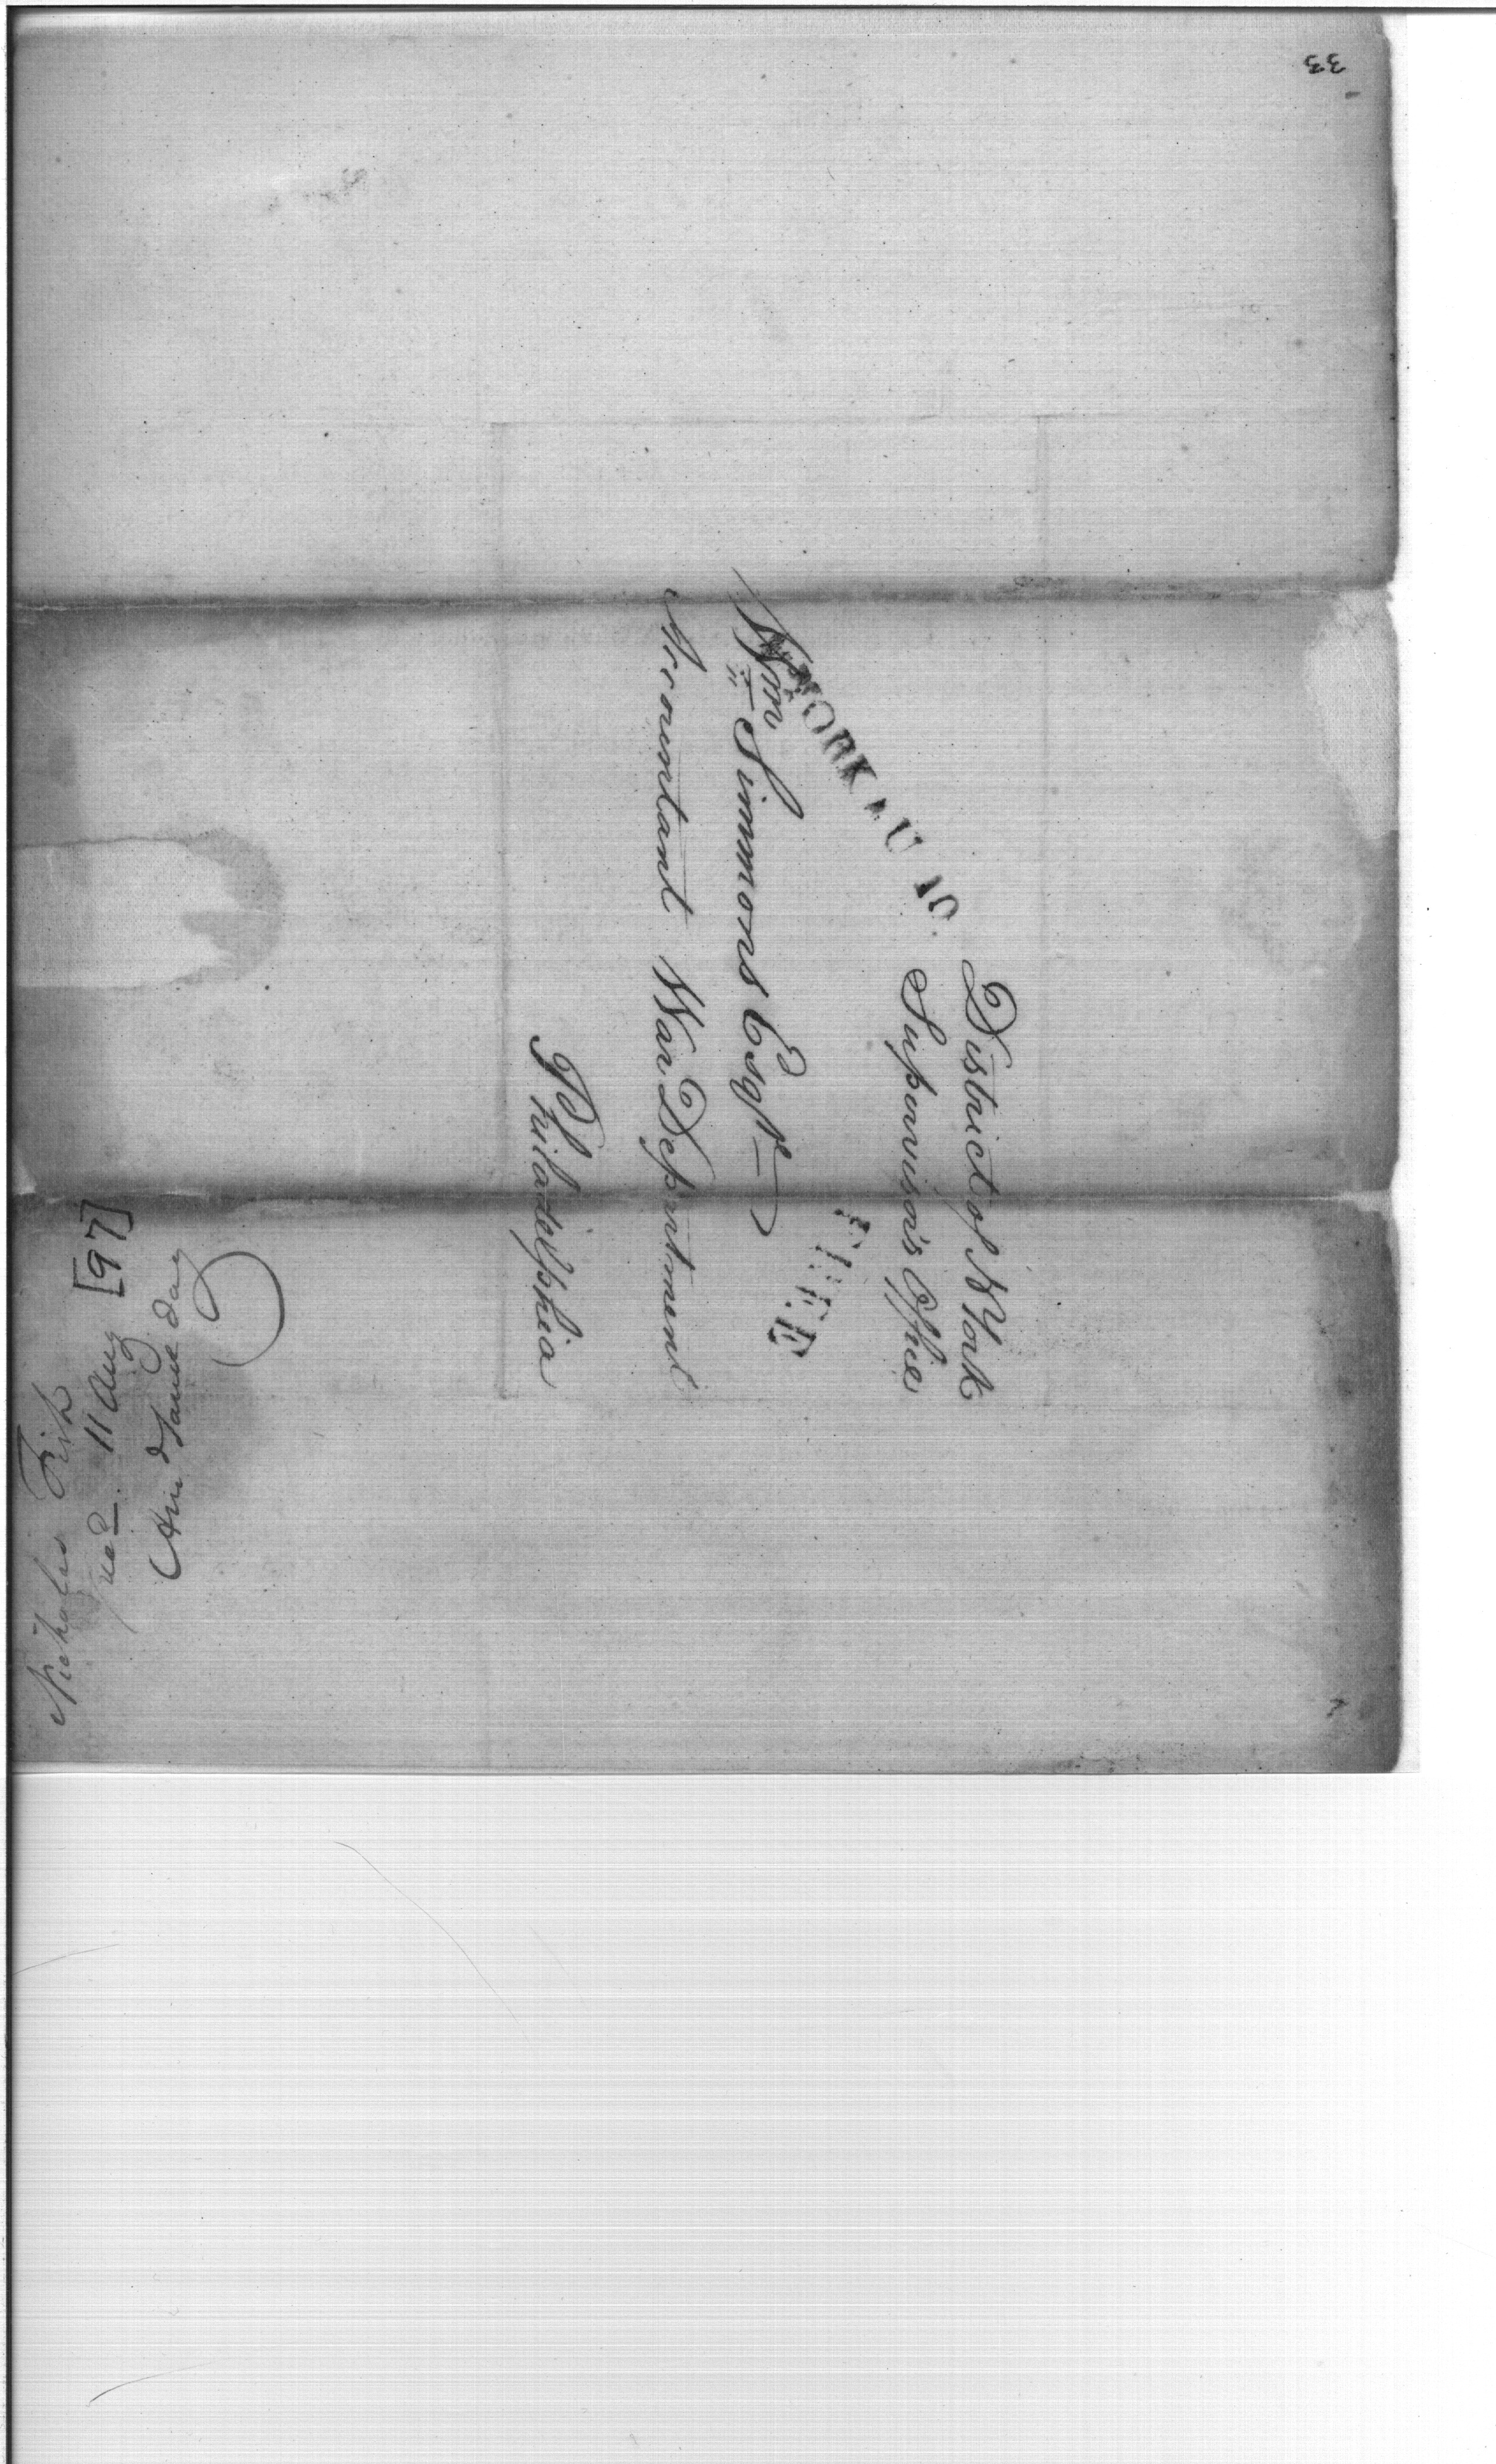 33
District of N York
Supervisor's Office
N*YORK AU 10.
FREE
Wm Simmons Esqr
Accountant War Department
Philadelphia
Nicholas Fish
recd. 11 Aug [97]
Ansd same day